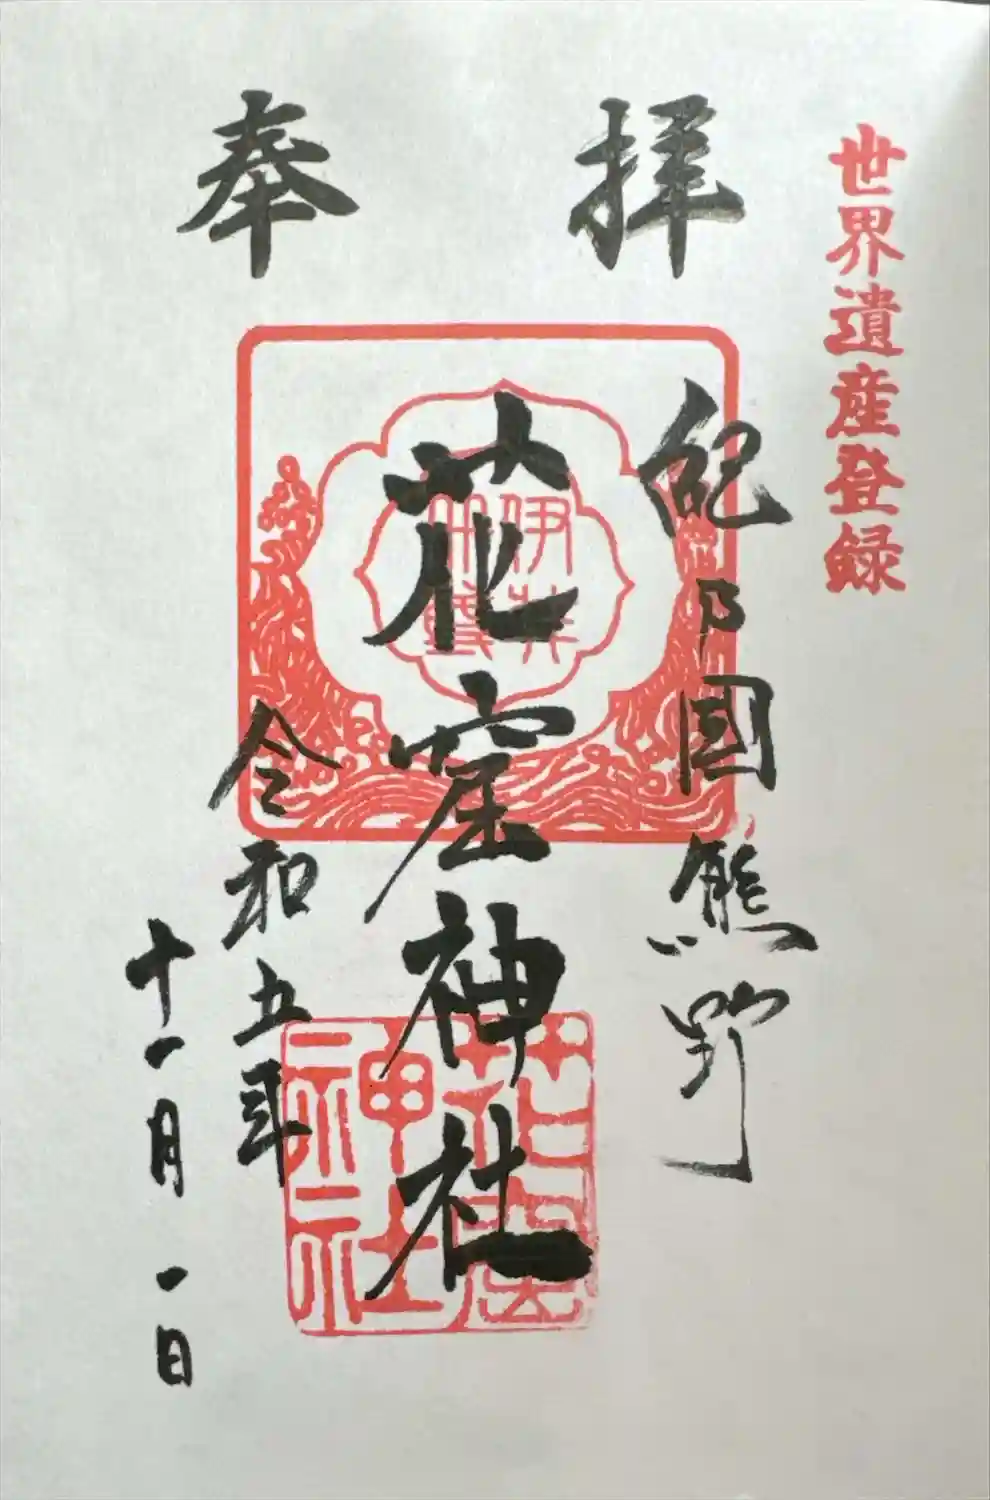 世界遺産登録
奉拝
紀乃國熊野
花窟神社
令和五年
十一月一日
伊弉冊尊
花窟神社